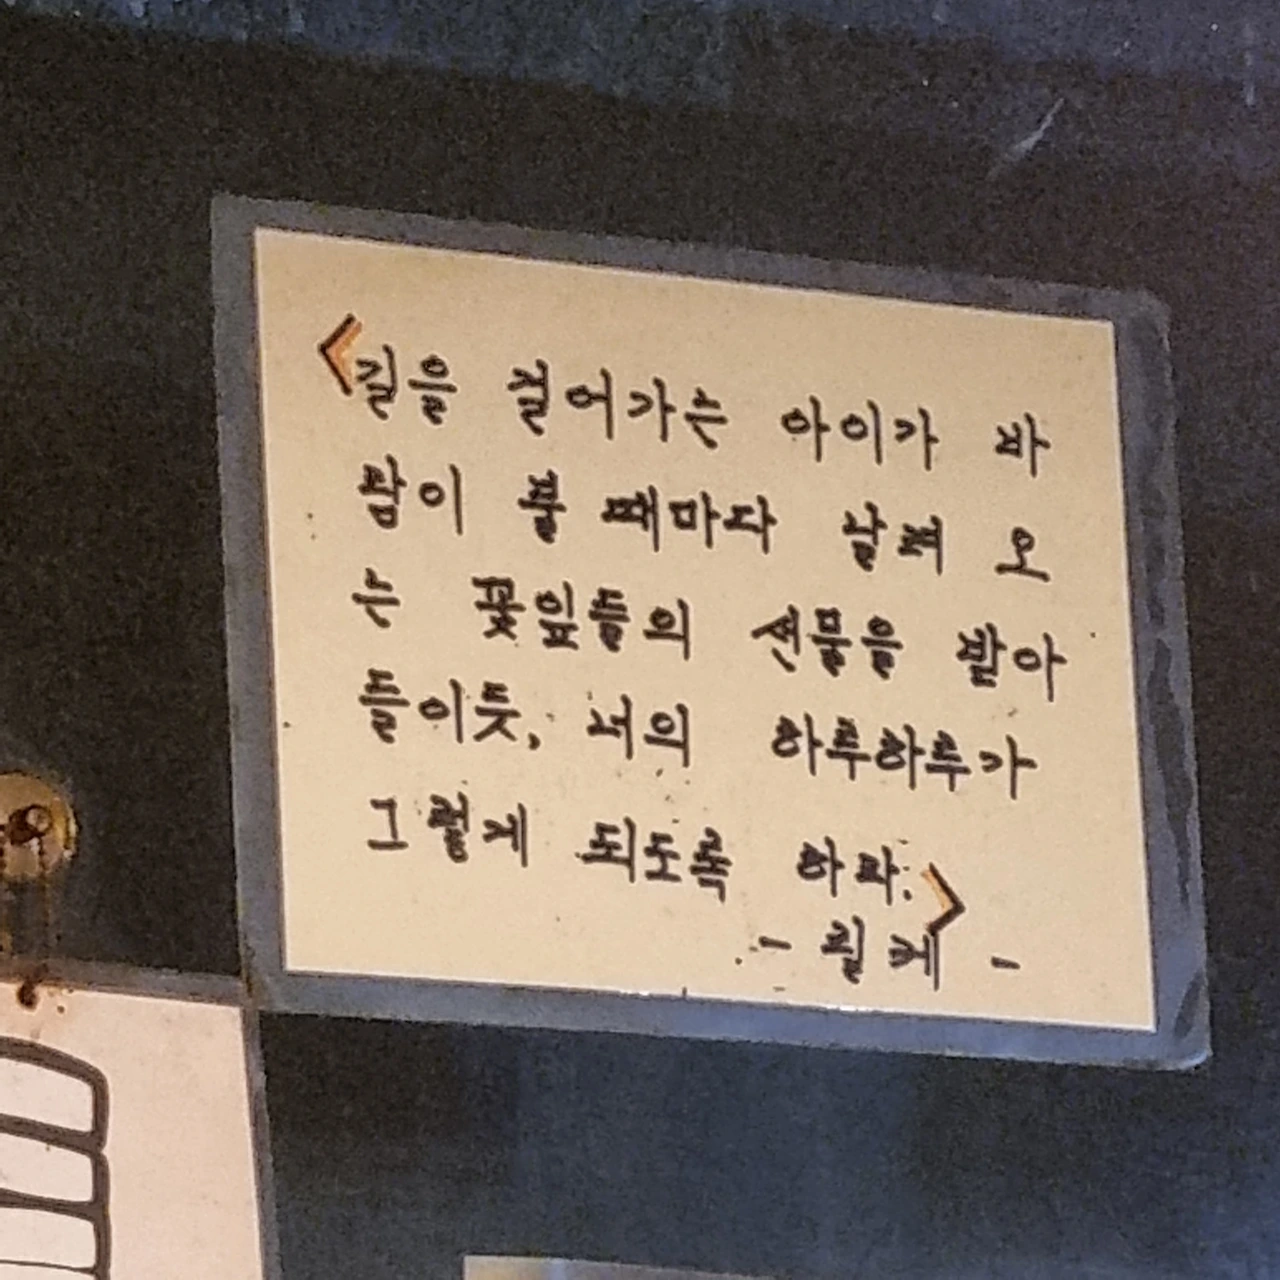 <길을 걸어가는 아이가 바
람이 불 때마다 날려 오
는 꽃잎들의 선물을 받아
들이듯, 너의 하루하루가
그렇게 되도록 하라.>
- 릴케 -